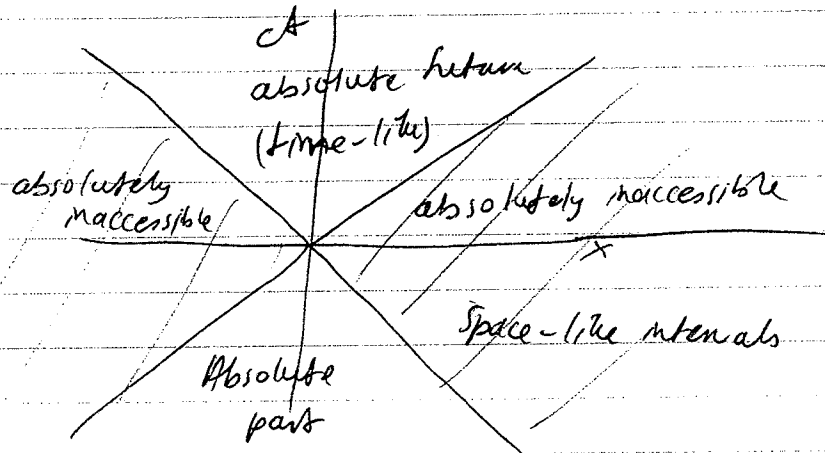 ct
absolute future
(time-like)
absolutely
inaccessible
absolutely inaccessible
x
Space-like intervals
Absolute
past